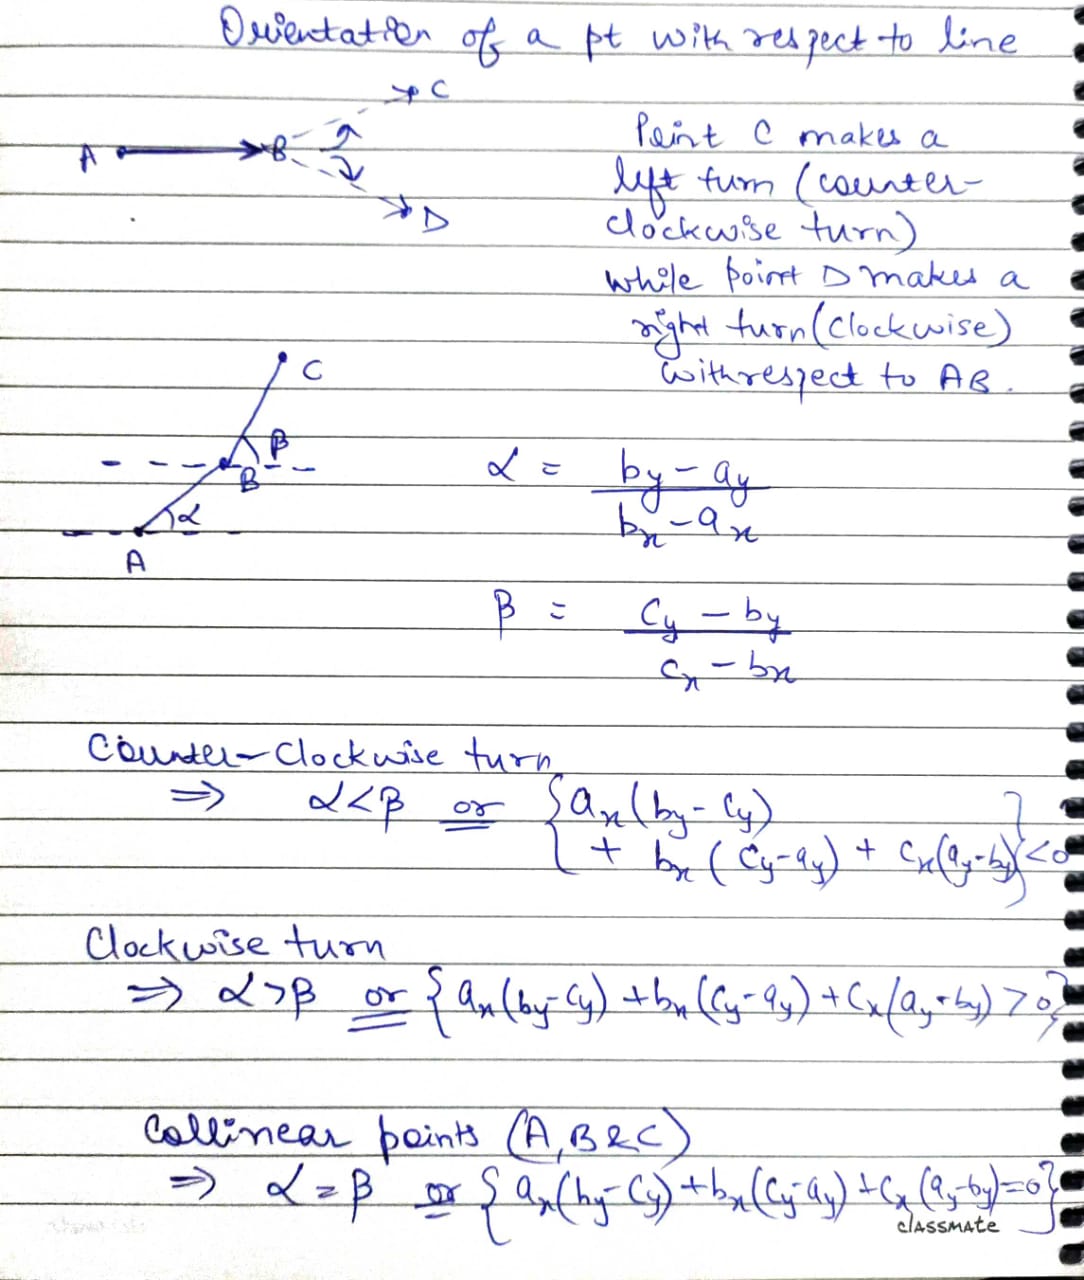 Orientation of a pt with respect to line
C
A
B
D
Point C makes a
left turn (counter-
clockwise turn)
while point D makes a
right turn (clockwise)
with respect to AB.
C
β
B
α
A
α = by - ay
bx - ax
β = Cy - by
cx - bx
Counter-Clockwise turn
⇒ α < β or { ax (by - Cy)
+ bx (Cy - ay) + Cx (ay - by) } < 0
Clockwise turn
⇒ α > β or { ax (by - Cy) + bx (Cy - ay) + Cx (ay - by) > 0 }
Collinear points (A, B & C)
⇒ α = β or { ax (by - Cy) + bx (Cy - ay) + Cx (ay - by) = 0 }
classmate